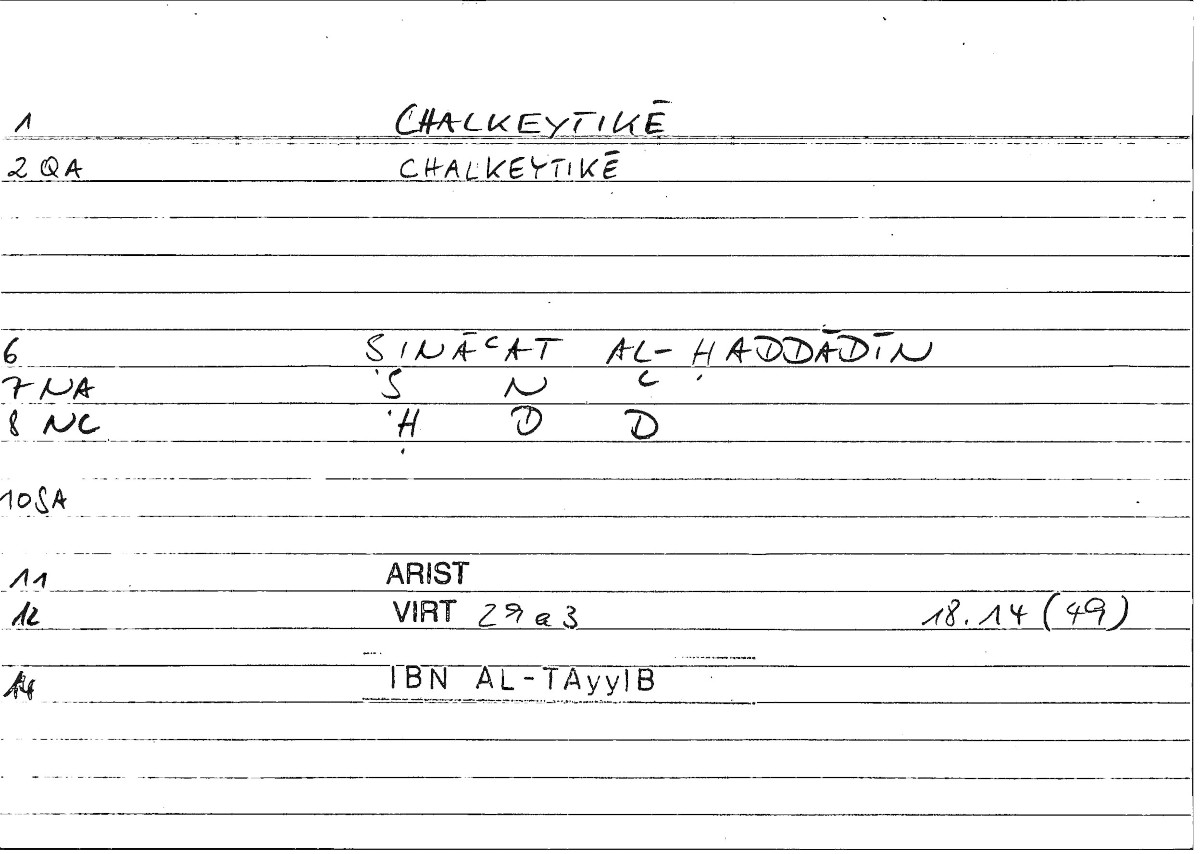 1 CHALKEYTIKĒ
2 QA CHALKEYTIKĒ
6 ṢINĀʿAT AL-ḤADDĀDĪN
7 NA Ṣ N ʿ
8 NC Ḥ D D
10 SA
11 ARIST
12 VIRT 29 a 3 18.14 (49)
14 IBN AL-TAyyIB